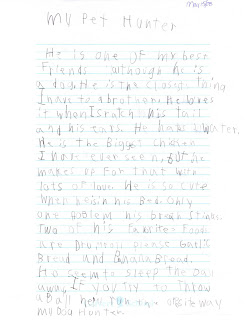 My Pet Hunter
He is one of my best
Friends although he is
a dog. He is the closest thing
I have to a brother. He loves
it when I scratch his tail
and his ears. He hates water.
He is the Biggest chicken
I have ever seen, But he
makes up For that with
lots of love. He is so cute
when he's in his Bed. Only
one problem his breath stinks.
Two of his Favorite Foods
are Drumroll please Garlic
Bread and Banana Bread.
He seem to sleep the Day
away. If you try to Throw
a Ball he run the way
My Dog Hunter